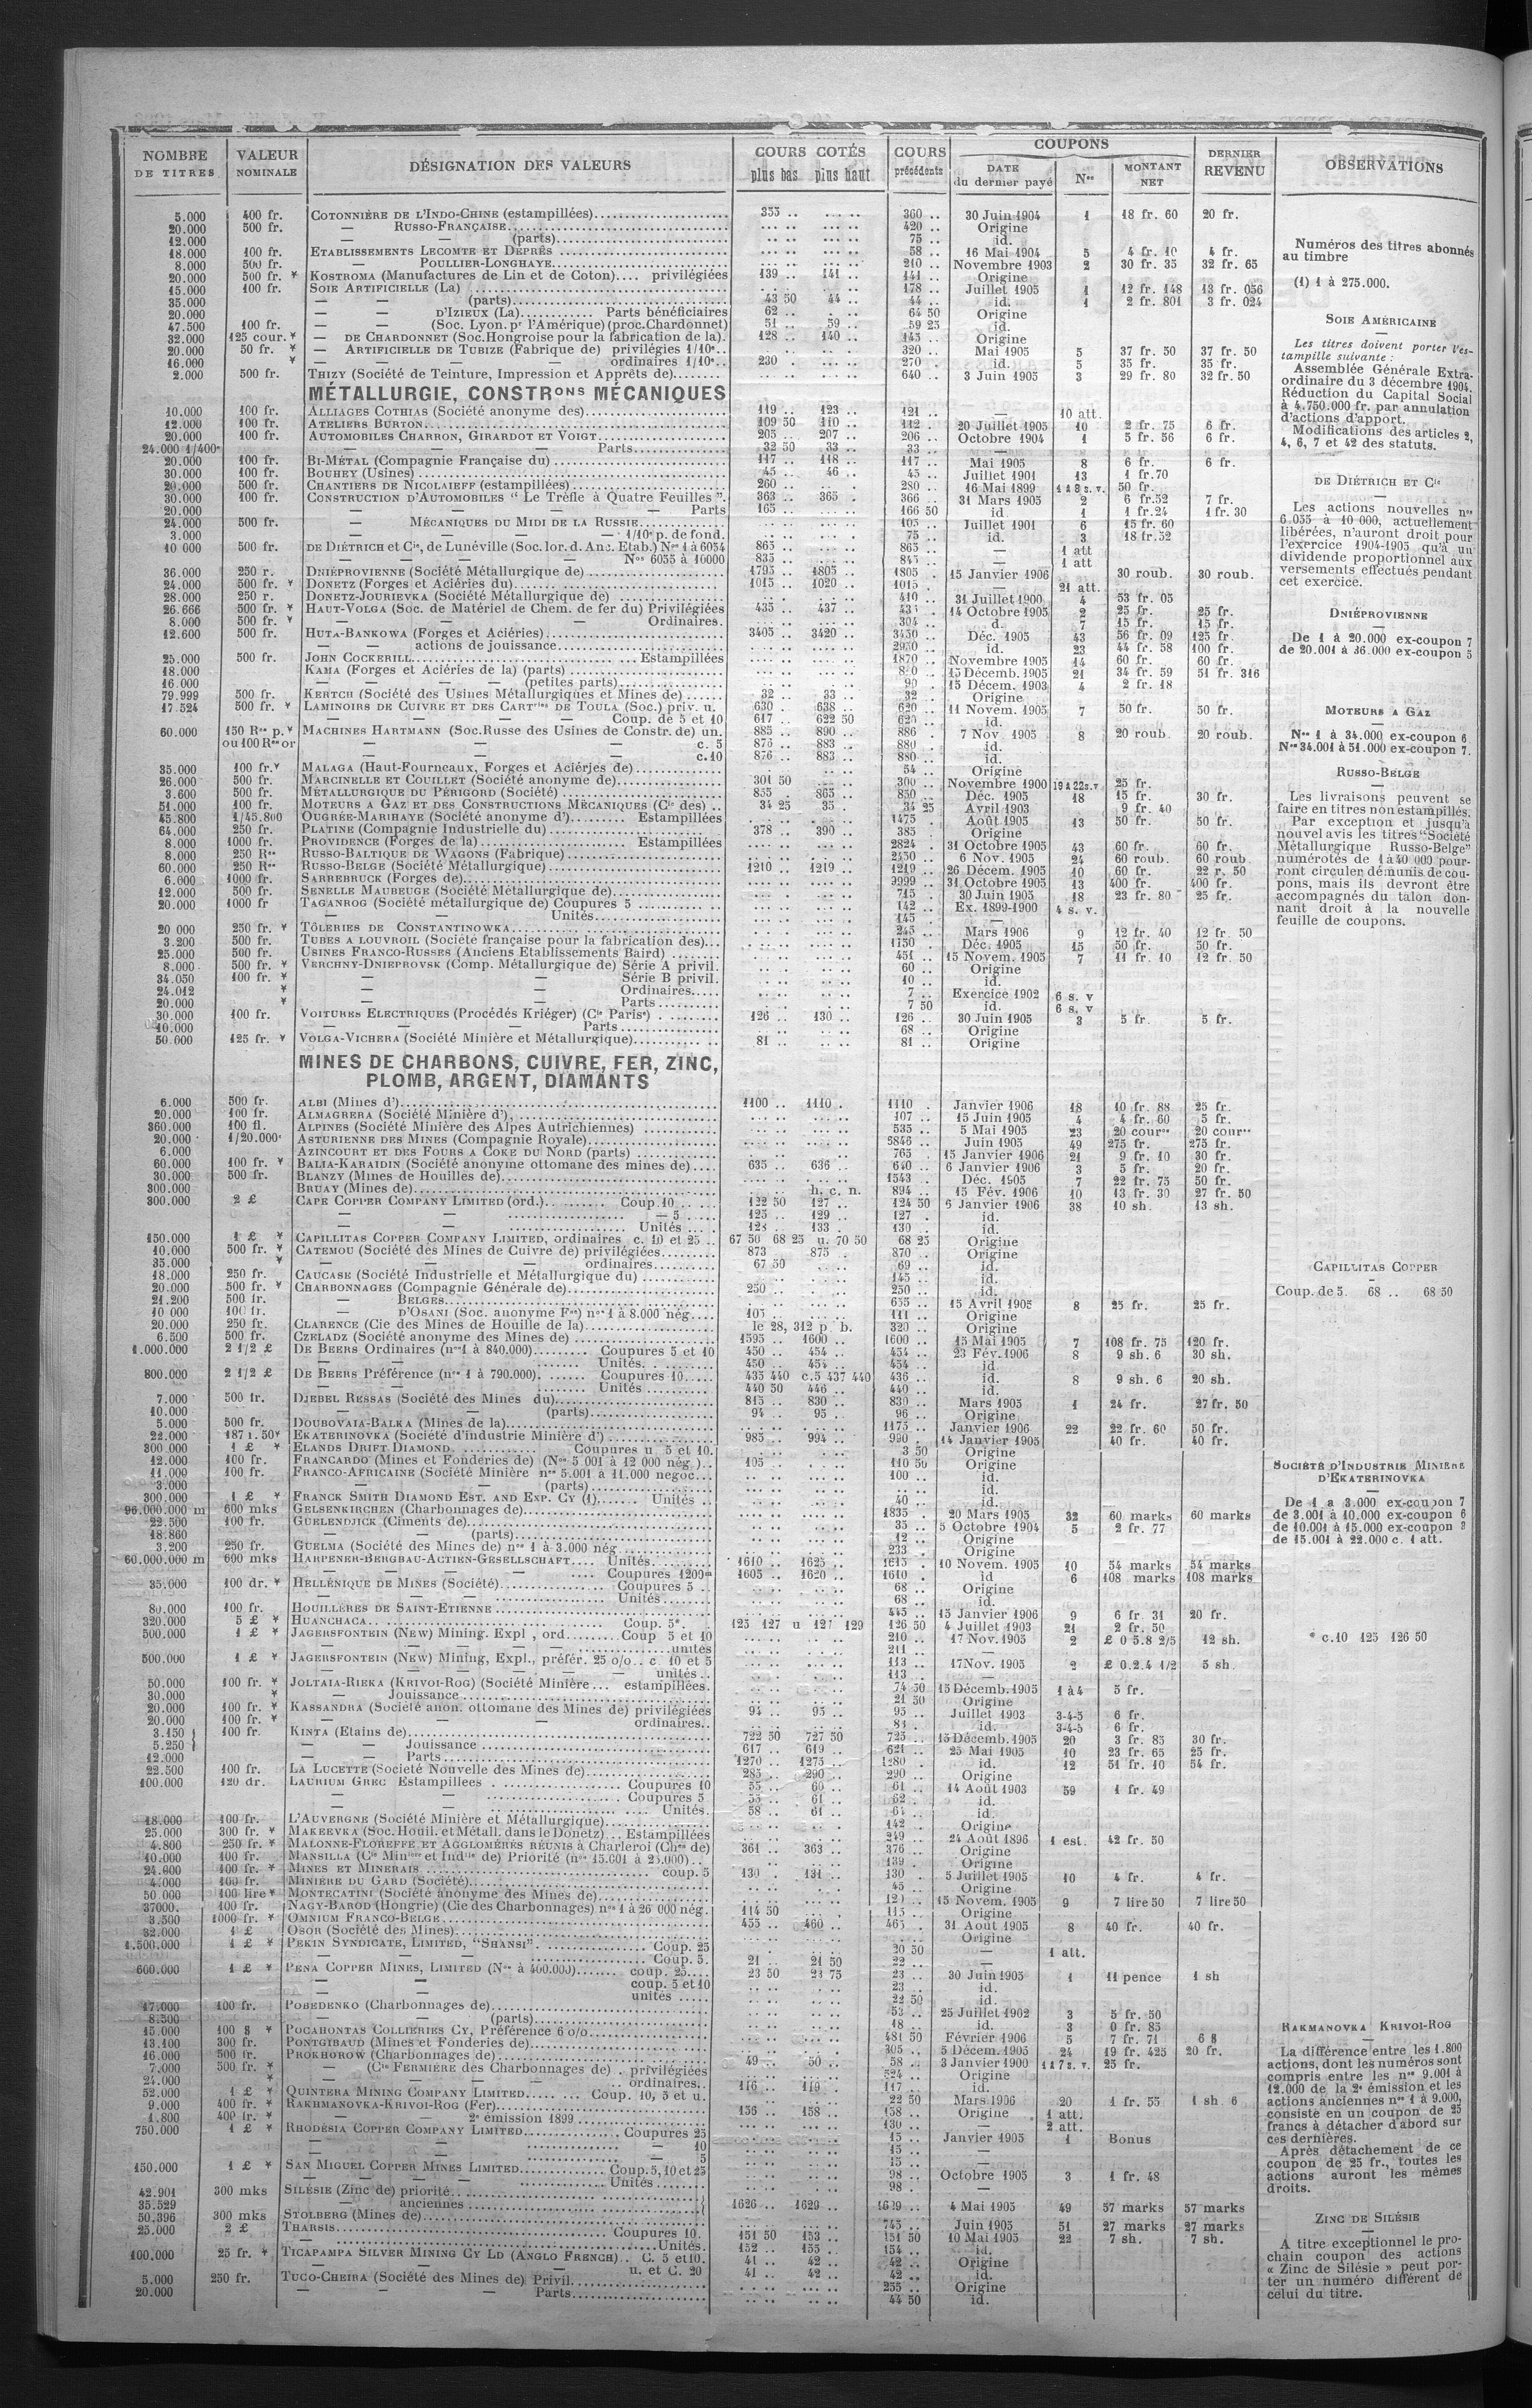 NOMBRE DE TITRES | VALEUR NOMINALE | DÉSIGNATION DES VALEURS | COURS COTÉS plus bas plus haut | COURS précédents | COUPONS DATE du dernier payé | Nos | MONTANT NET | DERNIER REVENU | OBSERVATIONS
5.000 400 fr. COTONNIÈRE DE L'INDO-CHINE (estampillées) 355 .. 360 .. 30 Juin 1904 1 18 fr. 60 20 fr.
20.000 500 fr. — RUSSO-FRANÇAISE 420 .. Origine
12.000 — (parts) 75 .. id.
18.000 100 fr. ETABLISSEMENTS LECOMTE ET DEPRÈS 58 .. 16 Mai 1904 5 4 fr. 10 4 fr.
8.000 500 fr. — POULLIER-LONGHAYE 210 .. Novembre 1903 2 30 fr. 35 32 fr. 65
20.000 500 fr. * KOSTROMA (Manufactures de Lin et de Coton) privilégiées 139 .. 141 .. 141 .. Origine
15.000 100 fr. SOIE ARTIFICIELLE (La) 178 .. Juillet 1905 1 12 fr. 148 13 fr. 056
35.000 — — (parts) 43 50 44 .. 44 .. id. 1 2 fr. 801 3 fr. 024
20.000 — D'IZIEUX (La) Parts bénéficiaires 62 .. 64 50 Origine
47.500 100 fr. — (Soc. Lyon. pr l'Amérique) (proc. Chardonnet) 51 .. 59 .. 59 25 id.
32.000 125 cour. * — DE CHARDONNET (Soc. Hongroise pour la fabrication de la) 128 .. 140 .. 145 .. Origine
20.000 50 fr. * — ARTIFICIELLE DE TUBIZE (Fabrique de) privilégies 1/10e 320 .. Mai 1905 5 37 fr. 50 37 fr. 50
16.000 * — — — ordinaires 1/10e 230 . 270 . id. 5 35 fr. 35 fr.
2.000 500 fr. THIZY (Société de Teinture, Impression et Apprêts de) 640 .. 3 Juin 1905 3 29 fr. 80 32 fr. 50
MÉTALLURGIE, CONSTRons MÉCANIQUES
10.000 100 fr. ALLIAGES COTHIAS (Société anonyme des) 119 .. 123 .. 121 .. — 10 att.
12.000 100 fr. ATELIERS BURTON 109 50 110 .. 112 .. 20 Juillet 1905 10 2 fr. 75 6 fr.
20.000 100 fr. AUTOMOBILES CHARRON, GIRARDOT ET VOIGT 205 .. 207 .. 206 .. Octobre 1904 1 5 fr. 56 6 fr.
24.000 1/400e — — — Parts 32 50 33 .. 33 .. —
20.000 100 fr. BI-MÉTAL (Compagnie Française du) 117 .. 118 .. 117 .. Mai 1905 8 6 fr. 6 fr.
30.000 100 fr. BOUHEY (Usines) 45 .. 46 .. 45 .. Juillet 1901 13 1 fr.70
20.000 500 fr. CHANTIERS DE NICOLAIEFF (estampillées) 260 .. 280 .. 16 Mai 1899 1 à 8 s. v. 50 fr.
30.000 100 fr. CONSTRUCTION D'AUTOMOBILES “ Le Trèfle à Quatre Feuilles ” 363 .. 365 . 366 .. 31 Mars 1905 2 6 fr.52 7 fr.
20.000 — — — Parts 165 .. 166 50 id 1 1 fr.24 1 fr. 30
24.000 500 fr. — MÉCANIQUES DU MIDI DE LA RUSSIE 105 .. Juillet 1901 6 15 fr. 60
3.000 — — — 1/10e p. de fond. 75 .. id. 3 18 fr.52
10 000 500 fr. DE DIÉTRICH et Cie, de Lunéville (Soc. lor. d. Anc. Etab.) Nos 1 à 6054 865 .. 865 .. — 1 att
— — — Nos 6055 à 10000 835 .. 845 .. — 1 att
36.000 250 r. DNIÉPROVIENNE (Société Métallurgique de) 1795 .. 1805 .. 1805 . 15 Janvier 1906 30 roub. 30 roub.
24.000 500 fr. * DONETZ (Forges et Aciéries du) 1015 .. 1020 .. 1015 . 21 att.
28.000 250 r. DONETZ-JOURIEVKA (Société Métallurgique de) 410 .. 31 Juillet 1900 4 53 fr. 05
26.666 500 fr. * HAUT-VOLGA (Soc. de Matériel de Chem. de fer du) Privilégiées 435 .. 437 .. 14 Octobre 1905 2 25 fr. 25 fr.
8.000 500 fr. * — — — Ordinaires. 304 .. 7 15 fr. 15 fr.
12.600 500 fr. HUTA-BANKOWA (Forges et Aciéries) 3405 .. 3420 .. 3450 .. Déc. 1905 43 56 fr. 09 125 fr.
— — actions de jouissance 2950 .. id. 23 44 fr. 58 100 fr.
25.000 500 fr. JOHN COCKERILL Estampillées 1870 .. Novembre 1905 14 60 fr. 60 fr.
18.000 KAMA (Forges et Aciéries de la) (parts) 15 Décemb. 1905 21 34 fr. 59 51 fr. 316
16.000 — — — (petites parts) 90 . 15 Décem. 1903 4 2 fr. 18
79.999 500 fr. KERTCH (Société des Usines Métallurgiques et Mines de) 32 .. 33 .. 32 .. Origine
17.524 500 fr. * LAMINOIRS DE CUIVRE ET DES CARTries DE TOULA (Soc.) priv. u. 630 .. 638 .. 620 .. 11 Novem. 1905 7 50 fr. 50 fr.
— — — Coup. de 5 et 10 617 .. 622 50 620 .. id.
60.000 150 Res p. * MACHINES HARTMANN (Soc. Russe des Usines de Constr. de) un. 885 .. 890 .. 886 .. 7 Nov. 1905 8 20 roub. 20 roub.
ou 100 Res or — — — c. 5 875 .. 883 .. 880 . id.
— — — c. 10 876 .. 883 .. 880 .. id.
35.000 100 fr. * MALAGA (Haut-Fourneaux, Forges et Aciéries de) 54 .. Origine
26.000 500 fr. MARCINELLE ET COUILLET (Société anonyme de) 301 50 300 .. Novembre 1900 19 à 22 s. v 25 fr.
3.600 500 fr. MÉTALLURGIQUE DU PÉRIGORD (Société) 855 . 865 .. 850 .. Déc. 1905 18 15 fr. 30 fr.
51.000 100 fr. MOTEURS A GAZ ET DES CONSTRUCTIONS MÉCANIQUES (Cie des) 34 25 35 . 34 25 Avril 1903 9 fr. 40
45.800 1/45.800 OUGRÉE-MARIHAYE (Société anonyme d') Estampillées 1475 .. Août 1905 13 50 fr. 50 fr.
64.000 250 fr. PLATINE (Compagnie Industrielle du) 378 .. 390 .. 385 Origine
8.000 1000 fr. PROVIDENCE (Forges de la) Estampillées 2824 . 31 Octobre 1905 43 60 fr. 60 fr.
8.000 250 Res RUSSO-BALTIQUE DE WAGONS (Fabrique) 2450 .. 6 Nov. 1905 24 60 roub. 60 roub
60.000 250 Res RUSSO-BELGE (Société Métallurgique) 1210 .. 1219 .. 1219 .. 26 Décem. 1905 10 60 fr. 22 r. 50
6.000 1000 fr. SARREBRUCK (Forges de) 9999 .. 31 Octobre 1905 13 400 fr. 400 fr.
12.000 500 fr. SENELLE MAUBEUGE (Société Métallurgique de) 715 . 30 Juin 1905 18 23 fr. 80 25 fr.
20.000 1000 fr TAGANROG (Société métallurgique de) Coupures 5 142 .. Ex. 1899-1900 4 s. v.
— — Unités 145 .. —
20 000 250 fr. * TÔLERIES DE CONSTANTINOWKA 245 .. Mars 1906 9 12 fr. 40 12 fr. 50
3.200 500 fr. TUBES A LOUVROIL (Société française pour la fabrication des) 1150 .. Déc. 1905 15 50 fr. 50 fr.
25.000 500 fr. USINES FRANCO-RUSSES (Anciens Etablissements Baird) 451 .. 15 Novem. 1905 7 11 fr. 10 12 fr. 50
8.000 500 fr. * VERCHNY-DNIEPROVSK (Comp. Métallurgique de) Série A privil. 60 .. Origine
34.050 100 fr. * — — Série B privil. 10 .. id.
24.012 * — — Ordinaires 7 .. Exercice 1902 6 s. v
20.000 * — — Parts 7 50 id. 6 s. v
30.000 100 fr. VOITURES ELECTRIQUES (Procédés Kriéger) (Cie Parise) 126 .. 130 .. 126 .. 30 Juin 1905 3 5 fr. 5 fr.
10.000 — — — Parts 68 .. Origine
50.000 125 fr. * VOLGA-VICHERA (Société Minière et Métallurgique) 81 .. 81 .. Origine
MINES DE CHARBONS, CUIVRE, FER, ZINC,
PLOMB, ARGENT, DIAMANTS
6.000 500 fr. ALBI (Mines d') 1100 .. 1110 . 1110 . Janvier 1906 18 10 fr. 88 25 fr.
20.000 100 fr. ALMAGRERA (Société Minière d') 107 .. 15 Juin 1905 4 4 fr. 60 5 fr.
360.000 100 fl. ALPINES (Société Minière des Alpes Autrichiennes) 535 .. 5 Mai 1905 23 20 cour. 20 cour.
20.000 1/20.000e ASTURIENNE DES MINES (Compagnie Royale) 5846 .. Juin 1905 49 275 fr. 275 fr.
6.000 AZINCOURT ET DES FOURS A COKE DU NORD (parts) 765 . 15 Janvier 1906 21 9 fr. 10 30 fr.
60.000 100 fr. * BALIA-KARAIDIN (Société anonyme ottomane des mines de) 635 .. 636 .. 640 .. 6 Janvier 1906 3 5 fr. 20 fr.
30.000 500 fr. BLANZY (Mines de Houilles de) 1543 .. Déc. 1905 7 22 fr. 75 50 fr.
300.000 BRUAY (Mines de) h. c. n. 894 .. 15 Fév. 1906 10 13 fr. 30 27 fr. 50
300.000 2 £ CAPE COPPER COMPANY LIMITED (ord.) Coup. 10 122 50 127 .. 124 50 6 Janvier 1906 38 10 sh. 13 sh.
— — — 5 125 .. 129 .. 127 . id.
— — Unités 128 .. 133 . 130 .. id.
150.000 1 £ * CAPILLITAS COPPER COMPANY LIMITED, ordinaires c. 10 et 25 67 50 68 25 u. 70 50 68 25 Origine
10.000 500 fr. * CATEMOU (Société des Mines de Cuivre de) privilégiées 873 875 . 870 .. Origine
35.000 * — — — ordinaires 67 50 69 .. id.
18.000 250 fr. CAUCASE (Société Industrielle et Métallurgique du) 145 .. id.
20.000 500 fr. * CHARBONNAGES (Compagnie Générale de) 250 .. 250 .. id.
21.200 500 fr. — BELGES 655 .. 15 Avril 1905 8 25 fr. 25 fr.
10 000 100 fr. — D'OSANI (Soc. anonyme Fse) nos 1 à 8.000 nég. 105 .. 111 .. Origine
20.000 250 fr. CLARENCE (Cie des Mines de Houille de la) le 28, 312 p. b. 320 .. Origine
6.500 500 fr. CZELADZ (Société anonyme des Mines de) 1595 .. 1600 .. 1600 .. 15 Mai 1905 7 108 fr. 75 120 fr.
1.000.000 2 1/2 £ DE BEERS Ordinaires (nos 1 à 840.000) Coupures 5 et 10 450 .. 454 .. 454 .. 23 Fév. 1906 8 9 sh. 6 30 sh.
— — Unités. 450 .. 454 .. 454 .. id.
800.000 2 1/2 £ DE BEERS Préférence (nos 1 à 790.000) Coupures 10 435 440 c. 5 437 440 436 .. id. 8 9 sh. 6 20 sh.
— — Unités 440 50 446 .. 440 .. id.
7.000 500 fr. DJEBEL RESSAS (Société des Mines du) 815 .. 830 .. 830 .. Mars 1905 1 24 fr. 27 fr. 50
10.000 — — (parts) 94 .. 95 . 96 .. Origine
5.000 500 fr. DOUBOVAIA-BALKA (Mines de la) 1175 .. Janvier 1906 22 22 fr. 60 50 fr.
22.000 187 r. 50 * EKATERINOVKA (Société d'industrie Minière d') 985 .. 994 .. 990 . 14 Janvier 1905 40 fr. 40 fr.
300.000 1 £ * ELANDS DRIFT DIAMOND Coupures u. 5 et 10. 3 50 Origine
12.000 100 fr. FRANCARDO (Mines et Fonderies de) (Nos 5 001 à 12 000 nég.) 105 .. 110 50 Origine
11.000 100 fr. FRANCO-AFRICAINE (Société Minière nos 5.001 à 11.000 négoc. 100 .. id.
3.000 — — (parts) id.
300.000 1 £ * FRANCK SMITH DIAMOND EST. AND EXP. CY (1) Unités 40 .. id.
96.000.000 m 600 mks GELSENKIRCHEN (Charbonnages de) 1835 . 20 Mars 1905 32 60 marks 60 marks
22.500 100 fr. GUELENDJICK (Ciments de) 35 .. 5 Octobre 1904 5 2 fr. 77
18.860 — — (parts) 12 .. Origine
3.200 250 fr. GUELMA (Société des Mines de) nos 1 à 3.000 nég 233 . Origine
60.000.000 m 600 mks HARPENER-BERGBAU-ACTIEN-GESELLSCHAFT Unités 1610 .. 1625 .. 1615 . 10 Novem. 1905 10 54 marks 54 marks
— — — Coupures 1200m 1605 .. 1620 .. 1610 . id 6 108 marks 108 marks
35.000 100 dr. * HELLÉNIQUE DE MINES (Société) Coupures 5 68 .. Origine
— — Unités 68 .. id.
80.000 100 fr. HOUILLÈRES DE SAINT-ETIENNE 445 .. 15 Janvier 1906 9 6 fr. 31 20 fr.
320.000 5 £ * HUANCHACA Coup. 5*. 125 127 u 127 129 126 50 4 Juillet 1903 21 2 fr. 50
500.000 1 £ * JAGERSFONTEIN (NEW) Mining. Expl, ord. Coup 5 et 10 210 .. 17 Nov. 1905 2 £ 0 5.8 2/5 12 sh.
— — — unités 211 .. —
500.000 1 £ * JAGERSFONTEIN (NEW) Mining, Expl., préfér. 25 o/o c. 10 et 5 113 .. 17 Nov. 1905 2 £ 0.2.4 1/2 5 sh
— — — unités 113 .. —
50.000 100 fr. * JOLTAIA-RIEKA (KRIVOI-ROG) (Société Minière estampillées. 74 50 15 Décemb. 1905 1 à 4 5 fr.
30.000 * — Jouissance 21 50 Origine
20.000 100 fr. * KASSANDRA (Société anon. ottomane des Mines de) privilégiées 94 .. 95 .. 95 .. Juillet 1903 3-4-5 6 fr.
20.000 100 fr. * — — — ordinaires. id. 3-4-5 6 fr.
3.150 100 fr. KINTA (Etains de) 722 50 727 50 725 .. 15 Décemb. 1905 20 3 fr. 85 30 fr.
5.250 — — Jouissance 617 .. 619 .. 621 .. 25 Mai 1905 10 23 fr. 65 25 fr.
12.000 — — Parts 1270 .. 1275 .. 1280 .. id. 12 51 fr. 10 54 fr.
22.500 100 fr. LA LUCETTE (Société Nouvelle des Mines de) 285 .. 290 .. 290 .. Origine
100.000 120 dr. LAURIUM GREC Estampillées Coupures 10 55 .. 60 .. 61 .. 14 Août 1903 59 1 fr. 49
— — Coupures 5 55 .. 61 .. 62 .. id.
— — Unités. 58 .. 61 .. id.
18.000 100 fr. L'AUVERGNE (Société Minière et Métallurgique) 142 .. Origine
25.000 300 fr. * MAKEEVKA (Soc. Houil. et Métall. dans le Donetz) Estampillées 249 .. 24 Août 1896 1 est. 42 fr. 50
4.800 250 fr. * MALONNE-FLOREFFE ET AGGLOMÉRÉS RÉUNIS à Charleroi (Chges de) 361 .. 363 .. 376 .. Origine
10.000 100 fr. MANSILLA (Cie Minière et Indlle de) Priorité (nos 15.001 à 25.000) 139 .. Origine
24.000 100 fr. * MINES ET MINERAIS coup. 5 130 .. 131 .. 130 .. 5 Juillet 1905 10 4 fr. 4 fr.
4.000 100 fr. MINIÈRE DU GARD (Société) 45 .. Origine
50 000 100 lire * MONTECATINI (Société anonyme des Mines de) 15 Novem. 1905 9 7 lire 50 7 lire 50
37000. 100 fr. NAGY-BAROD (Hongrie) (Cie des Charbonnages) nos 1 à 26 000 nég. 114 50 115 .. Origine
3.500 1000 fr. * OMNIUM FRANCO-BELGE 455 .. 460 .. 465 . 31 Août 1905 8 40 fr. 40 fr.
32.000 1 £ OSOR (Société des Mines) Origine
1.500.000 1 £ * PEKIN SYNDICATE, LIMITED, “SHANSI”. Coup. 25 20 50 — 1 att.
— — Coup. 5. 21 .. 21 50 22 .. —
600.000 1 £ * PENA COPPER MINES, LIMITED (Nos à 400.000) coup. 25 23 50 23 75 23 .. 30 Juin 1905 1 11 pence 1 sh
— — coup. 5 et 10 23 .. id.
— — unités 22 50 id.
17.000 100 fr. POBEDENKO (Charbonnages de) 53 .. 25 Juillet 1902 3 5 fr. 50
8.500 — — (parts) 18 .. id. 3 0 fr. 85
15.000 100 $ * POCAHONTAS COLLIERIES CY, Préférence 6 o/o 481 50 Février 1906 5 7 fr. 71 6 $
13.100 300 fr. PONTGIBAUD (Mines et Fonderies de) 305 .. 5 Décem. 1905 24 19 fr. 425 20 fr.
16.000 500 fr. PROKHOROW (Charbonnages de) 49 .. 50 .. 58 .. 3 Janvier 1900 1 à 7 s. v. 25 fr.
7.000 500 fr. * — (Cie FERMIÈRE des Charbonnages de) privilégiées 524 .. Origine
24.000 * — — ordinaires 116 .. 119 . 117 .. id.
52.000 1 £ * QUINTERA MINING COMPANY LIMITED Coup. 10, 5 et u. 22 50 Mars 1906 20 1 fr. 55 1 sh 6
9.000 400 fr. * RAKHMANOVKA-KRIVOI-ROG (Fer) 156 .. 158 .. 158 .. Origine 1 att.
1.800 400 fr. * — — 2e émission 1899 130 .. — 2 att.
750.000 1 £ * RHODESIA COPPER COMPANY LIMITED Coupures 25 15 .. Janvier 1905 1 Bonus
— — — 10 15 .. —
— — — 5 15 .. —
150.000 1 £ * SAN MIGUEL COPPER MINES LIMITED Coup. 5, 10 et 25 98 .. Octobre 1905 3 1 fr. 48
— — — Unités 98 . —
42.901 300 mks SILÉSIE (Zinc de) priorité
35.529 — anciennes 1626 .. 1629 .. 4 Mai 1905 49 57 marks 57 marks
50.396 300 mks STOLBERG (Mines de) 745 .. Juin 1905 51 27 marks 27 marks
25.000 2 £ THARSIS Coupures 10. 151 50 153 .. 151 50 10 Mai 1905 22 7 sh. 7 sh.
— Unités. 152 .. 155 .. 154 .. id.
100.000 25 fr. * TICAPAMPA SILVER MINING CY LD (ANGLO FRENCH) C. 5 et 10. 41 .. 42 .. 42 .. Origine
— — u. et C. 20 41 .. 42 .. 42 .. id.
5.000 250 fr. TUCO-CHEIRA (Société des Mines de) Privil. 255 .. Origine
20.000 — — — Parts 44 50 id.
Numéros des titres abonnés
au timbre
(1) 1 à 275.000.
SOIE AMÉRICAINE
Les titres doivent porter l'es-
tampille suivante :
Assemblée Générale Extra-
ordinaire du 3 décembre 1904.
Réduction du Capital Social
à 4.750.000 fr. par annulation
d'actions d'apport.
Modifications des articles 2,
4, 6, 7 et 42 des statuts.
DE DIÉTRICH ET Cie
Les actions nouvelles nos
6.055 à 10 000, actuellement
libérées, n'auront droit pour
l'exercice 1904-1905 qu'à un
dividende proportionnel aux
versements effectués pendant
cet exercice.
DNIÉPROVIENNE
De 1 à 20.000 ex-coupon 7
de 20.001 à 36.000 ex-coupon 5
MOTEURS A GAZ
Nos 1 à 34.000 ex-coupon 6
Nos 34.001 à 51.000 ex-coupon 7.
RUSSO-BELGE
Les livraisons peuvent se
faire en titres non estampillés.
Par exception et jusqu'à
nouvel avis les titres “Société
Métallurgique Russo-Belge”
numérotés de 1 à 40 000 pour-
ront circuler démunis de cou-
pons, mais ils devront être
accompagnés du talon don-
nant droit à la nouvelle
feuille de coupons.
CAPILLITAS COPPER
Coup. de 5. 68 .. 68 50
SOCIÉTÉ D'INDUSTRIE MINIÈRE
D'EKATERINOVKA
De 1 a 3.000 ex-coupon 7
de 3.001 à 10.000 ex-coupon 6
de 10.001 à 15.000 ex-coupon 3
de 15.001 à 22.000 c. 1 att.
* c.10 125 126 50
RAKMANOVKA KRIVOI-ROG
La différence entre les 1.800
actions, dont les numéros sont
compris entre les nos 9.001 à
12.000 de la 2e émission et les
actions anciennes nos 1 à 9.000,
consiste en un coupon de 25
francs à détacher d'abord sur
ces dernières.
Après détachement de ce
coupon de 25 fr., toutes les
actions auront les mêmes
droits.
ZINC DE SILÉSIE
A titre exceptionnel le pro-
chain coupon des actions
« Zinc de Silésie » peut por-
ter un numéro différent de
celui du titre.